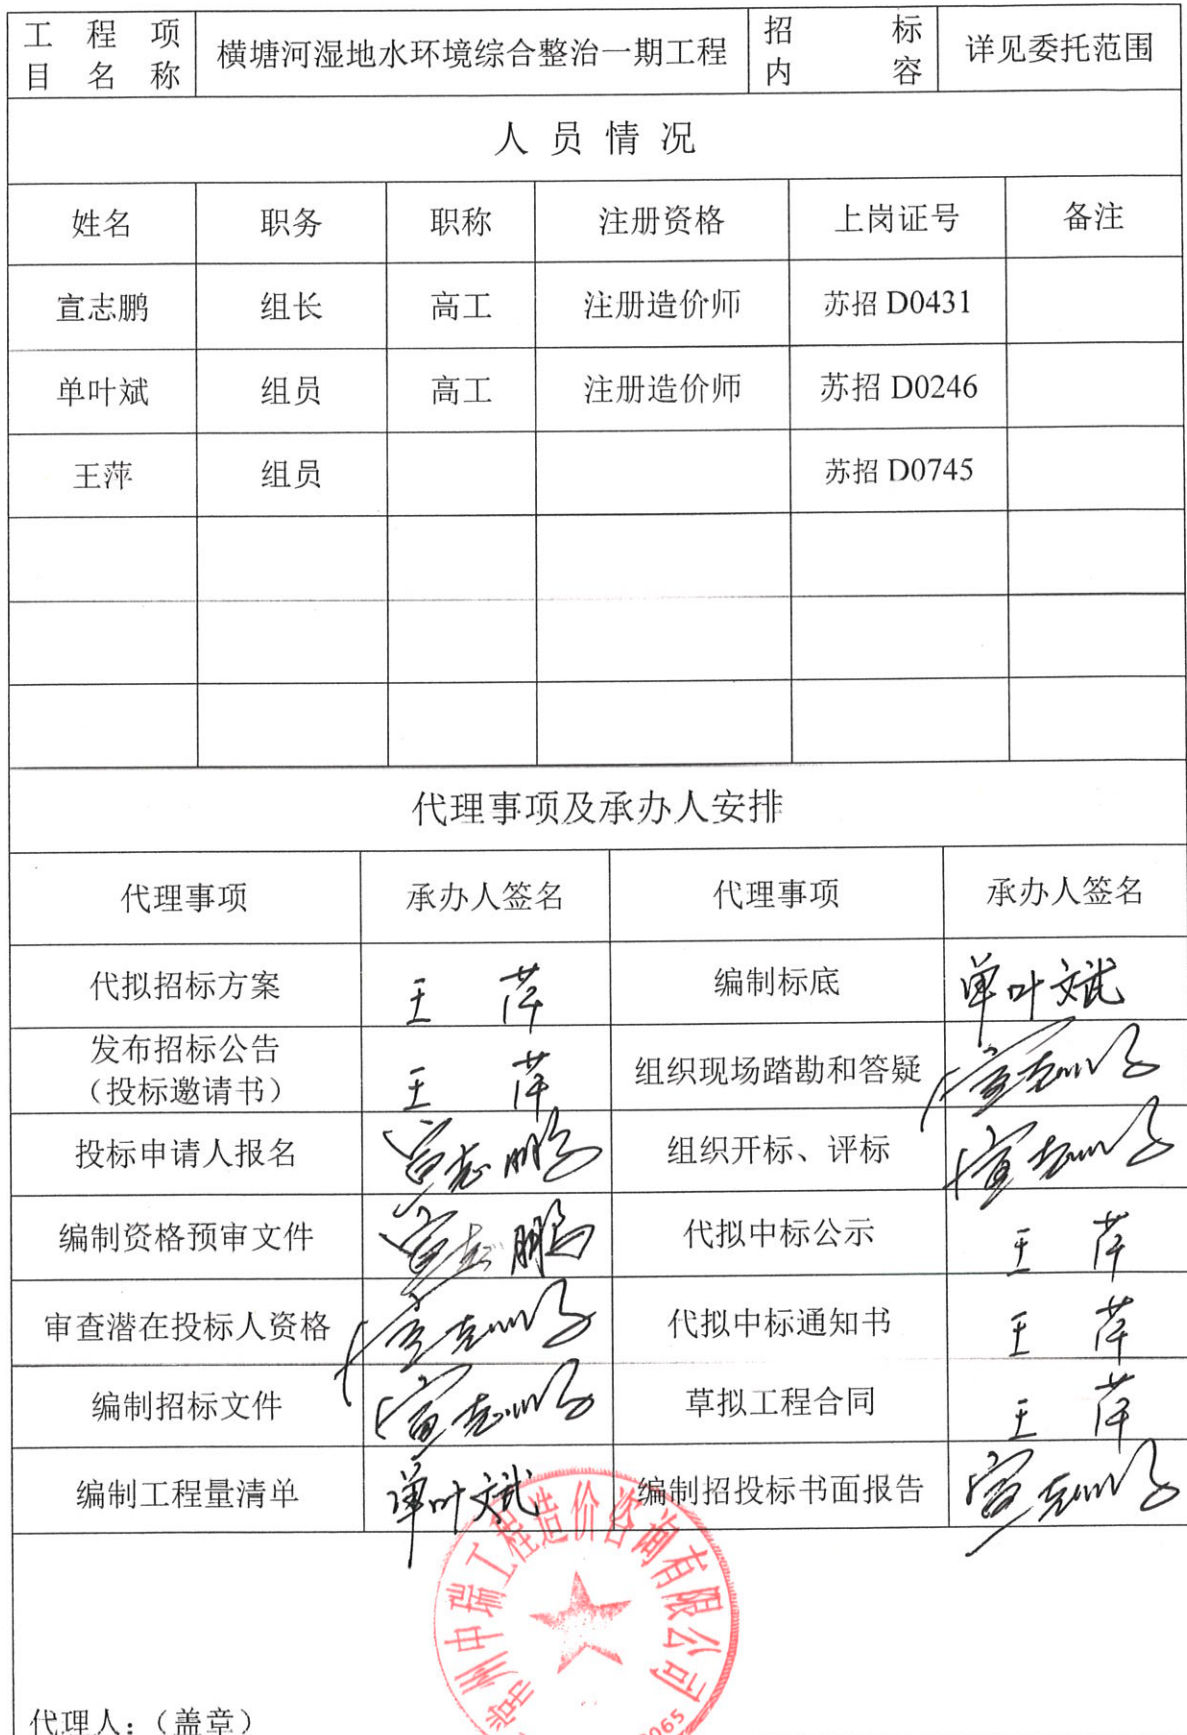 工程项目名称 横塘河湿地水环境综合整治一期工程 招标内容 详见委托范围
人员情况
姓名 职务 职称 注册资格 上岗证号 备注
宣志鹏 组长 高工 注册造价师 苏招 D0431
单叶斌 组员 高工 注册造价师 苏招 D0246
王萍 组员 苏招 D0745
代理事项及承办人安排
代理事项 承办人签名 代理事项 承办人签名
代拟招标方案 王萍 编制标底 单叶斌
发布招标公告（投标邀请书） 王萍 组织现场踏勘和答疑 宣志鹏
投标申请人报名 宣志鹏 组织开标、评标 宣志鹏
编制资格预审文件 宣志鹏 代拟中标公示 王萍
审查潜在投标人资格 宣志鹏 代拟中标通知书 王萍
编制招标文件 宣志鹏 草拟工程合同 王萍
编制工程量清单 单叶斌 编制招投标书面报告 宣志鹏
常州中瑞工程造价咨询有限公司
代理人：（盖章）